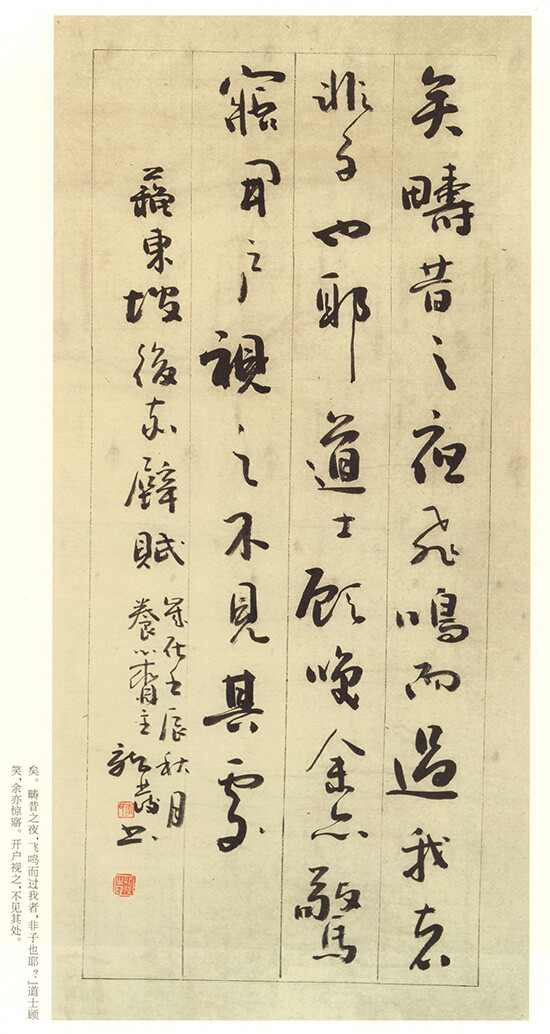 矣疇昔之夜飛鳴而過我者
非子也耶道士顧咲余亦驚
寤開户視之不見其處
蘇東坡後赤壁賦
歲在壬辰秋月
養心齋主 書
矣。畴昔之夜,飞鸣而过我者,非子也耶?」道士顾
笑,余亦惊寤。开户视之,不见其处。